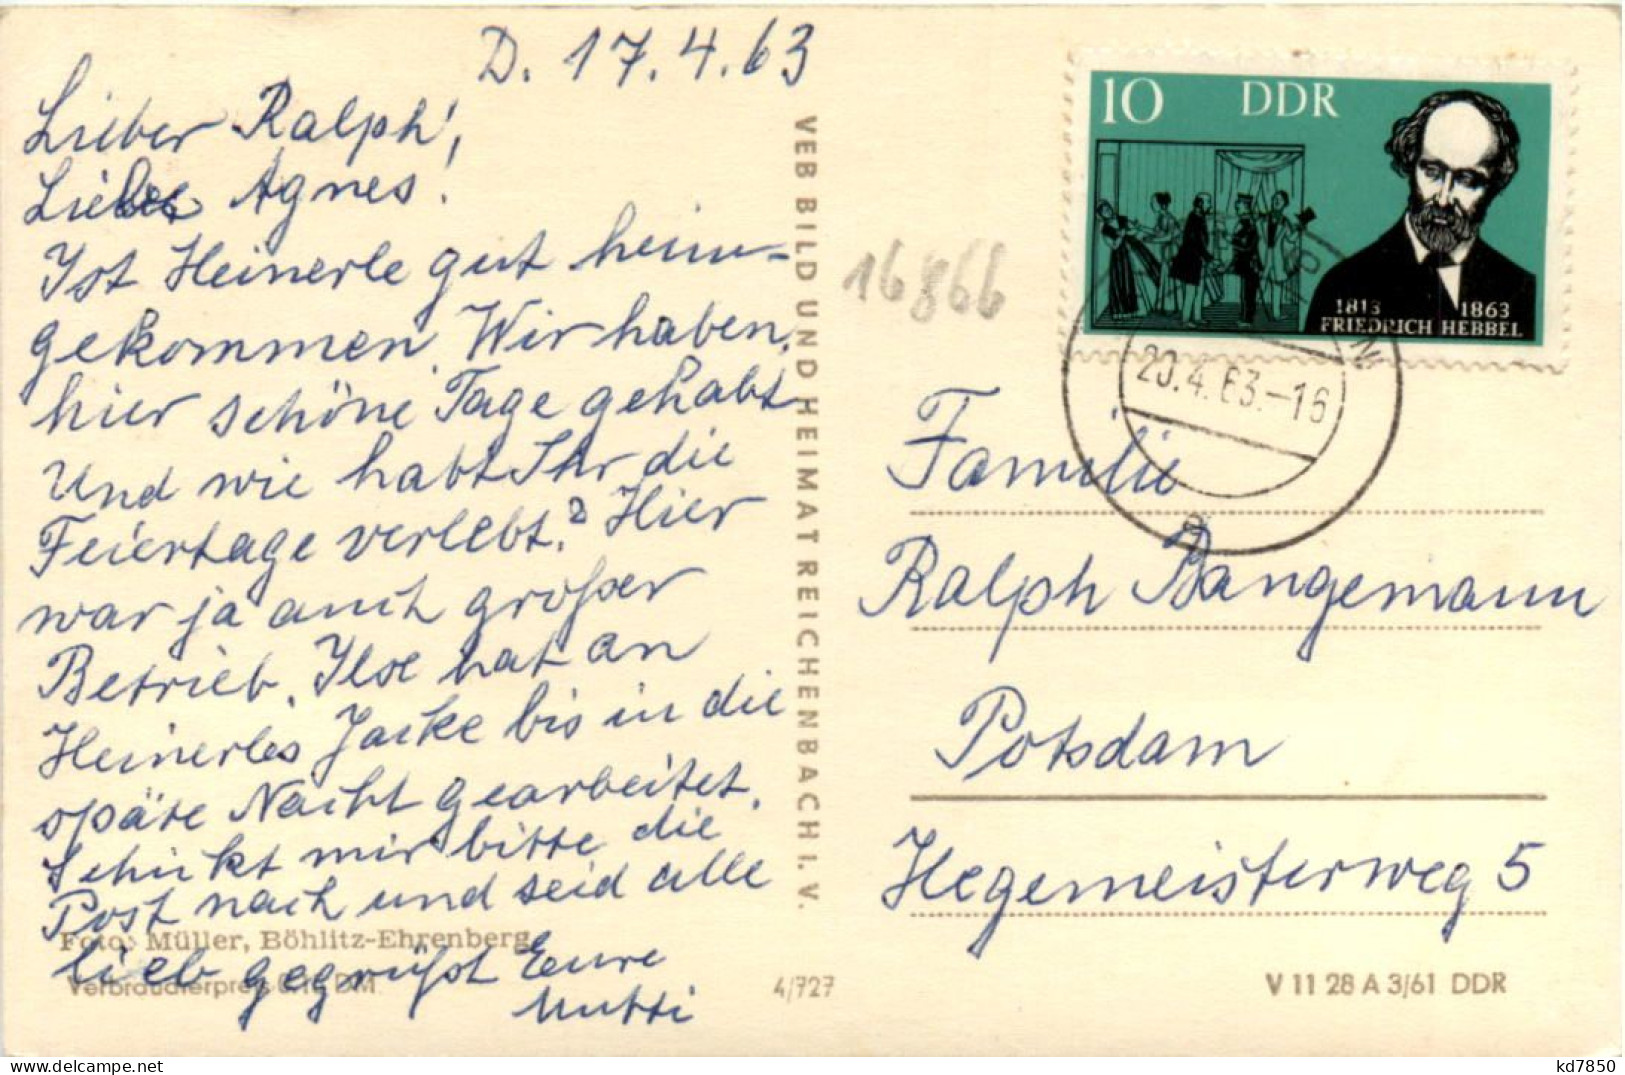 D. 17.4.63
Lieber Ralph!,
Liebe Agnes!
Ist Heinerle gut heim-
gekommen. Wir haben
hier schöne Tage gehabt
Und wie habt Ihr die
Feiertage verlebt? Hier
war ja auch großer
Betrieb. Ilse hat an
Heinerles Jacke bis in die
späte Nacht gearbeitet.
Schickt mir bitte die
Post nach und seid alle
lieb gegrüßt Eure
Mutti
Foto: Müller, Böhlitz-Ehrenberg
Verbraucherpreis DM
4/727
VEB BILD UND HEIMAT REICHENBACH I. V.
16866
10 DDR
1813 1863
FRIEDRICH HEBBEL
20.4.63.-16
Familie
Ralph Bangemann
Potsdam
Hegemeisterweg 5
V 11 28 A 3/61 DDR
https://www.delcampe.net
kd7850